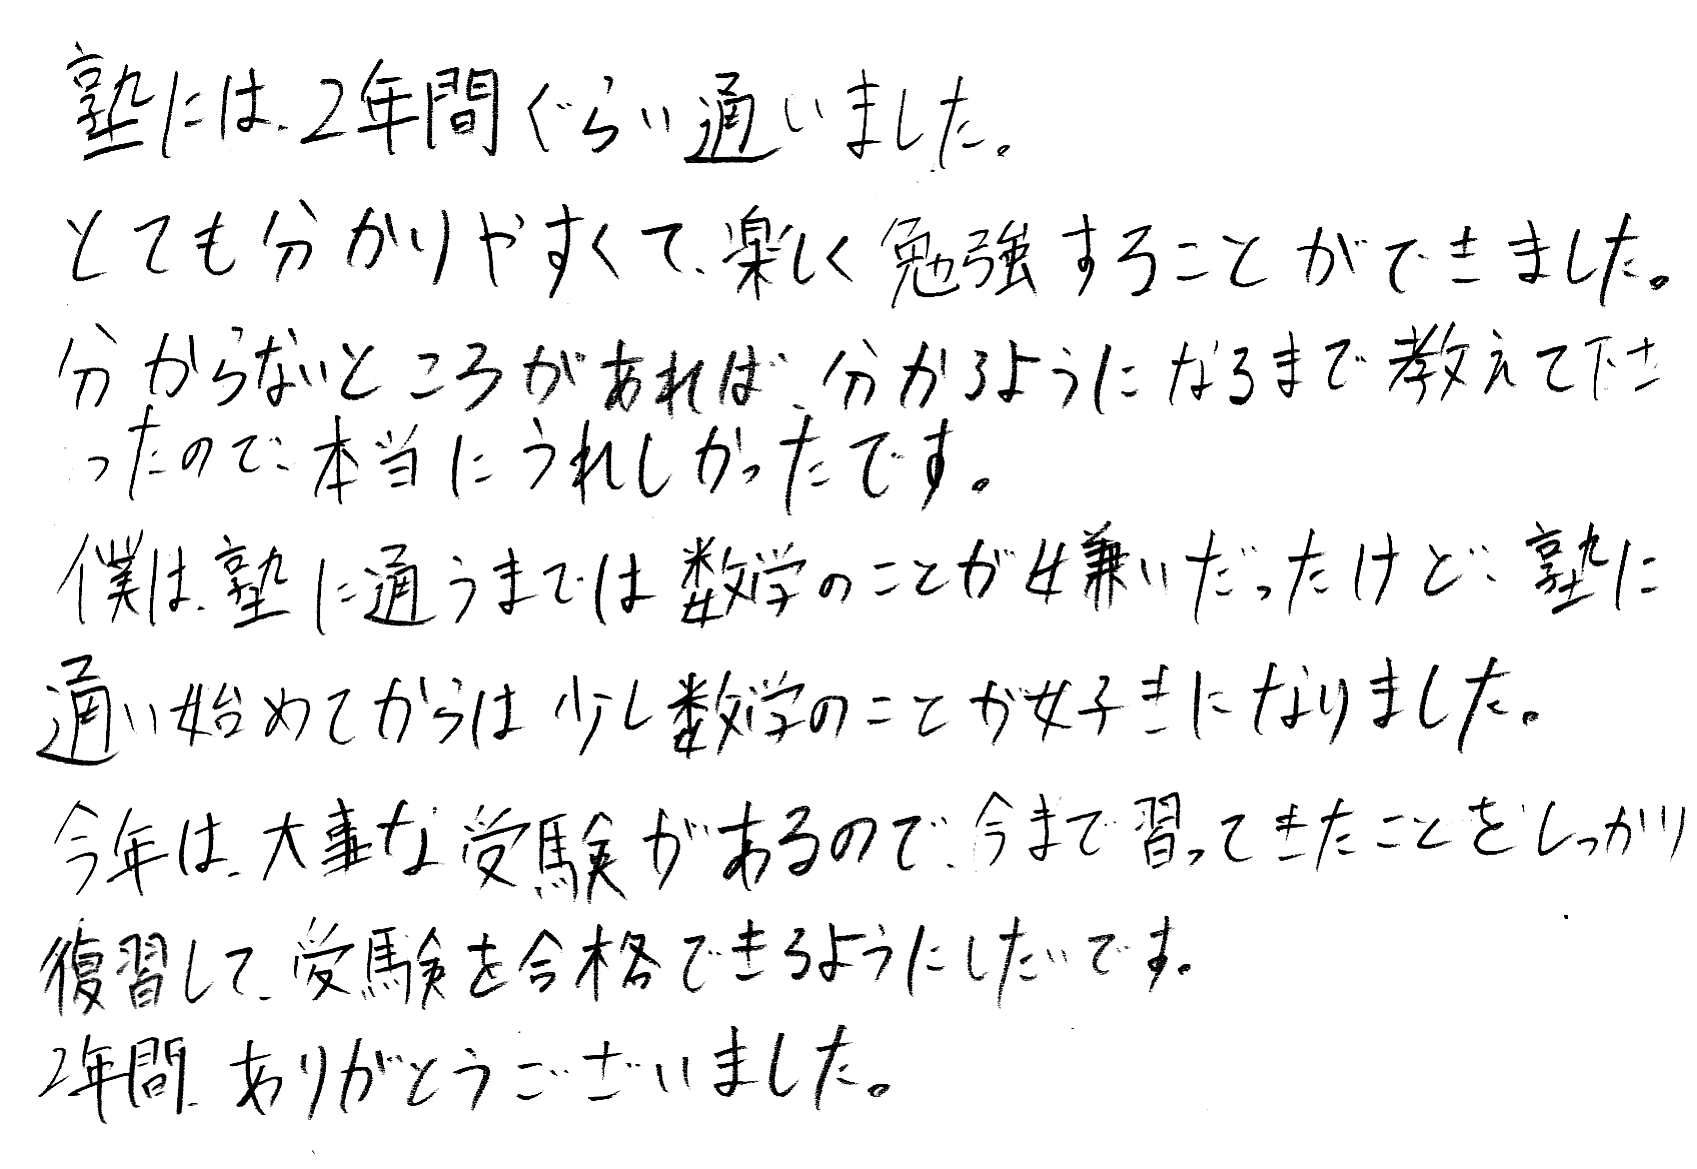 塾には、2年間ぐらい通いました。
とても分かりやすくて、楽しく勉強することができました。
分からないところがあれば、分かるようになるまで教えて下さ
ったので、本当にうれしかったです。
僕は、塾に通うまでは数学のことが嫌いだったけど、塾に
通い始めてからは少し数学のことが好きになりました。
今年は、大事な受験があるので、今まで習ってきたことをしっかり
復習して、受験を合格できるようにしたいです。
2年間、ありがとうございました。